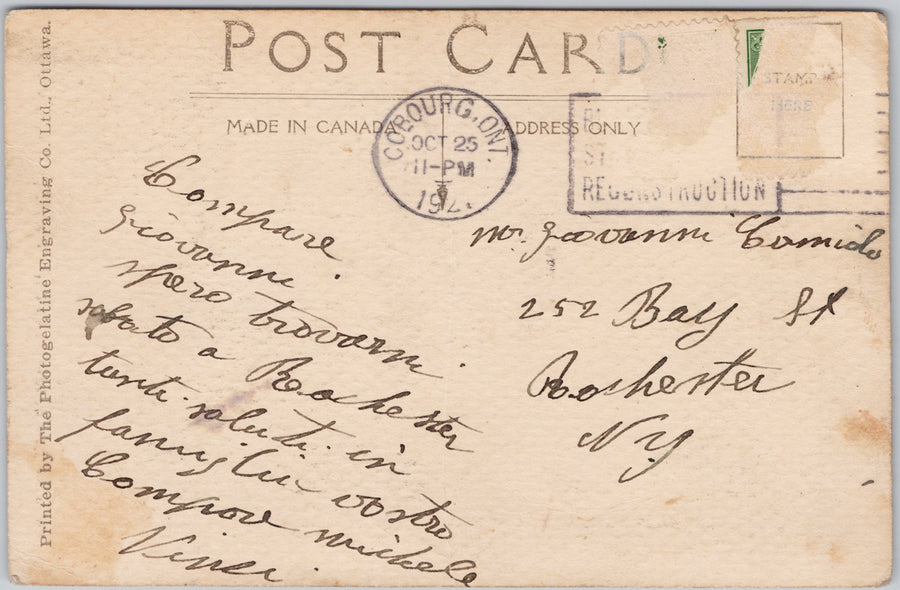 POST CARD
MADE IN CANADA
ADDRESS ONLY
STAMP
HERE
COBOURG, ONT.
OCT 25
11-PM
192
RECONSTRUCTION
Compare
Giovanni.
spero trovarmi
sabato a Rochester
tanti saluti in
famiglia vostro
Compare michele
Vinci.
Mr. Giovanni
252 Bay St
Rochester
NY
Printed by The Photogelatine Engraving Co. Ltd., Ottawa.